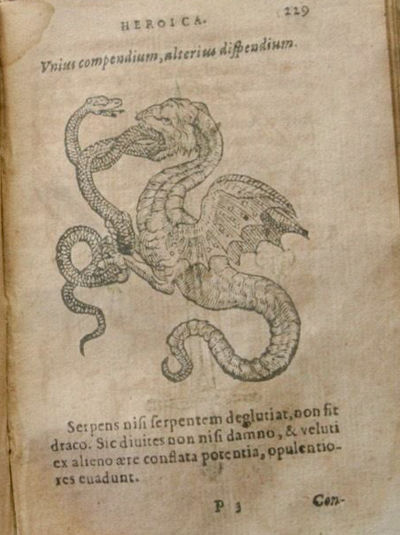 HEROICA.
229
Vnius compendium, alterius dispendium.
Serpens nisi serpentem deglutiat, non fit
draco. Sic diuites non nisi damno, & veluti
ex alieno ære conflata potentia, opulentio-
res euadunt.
P 3
Con-